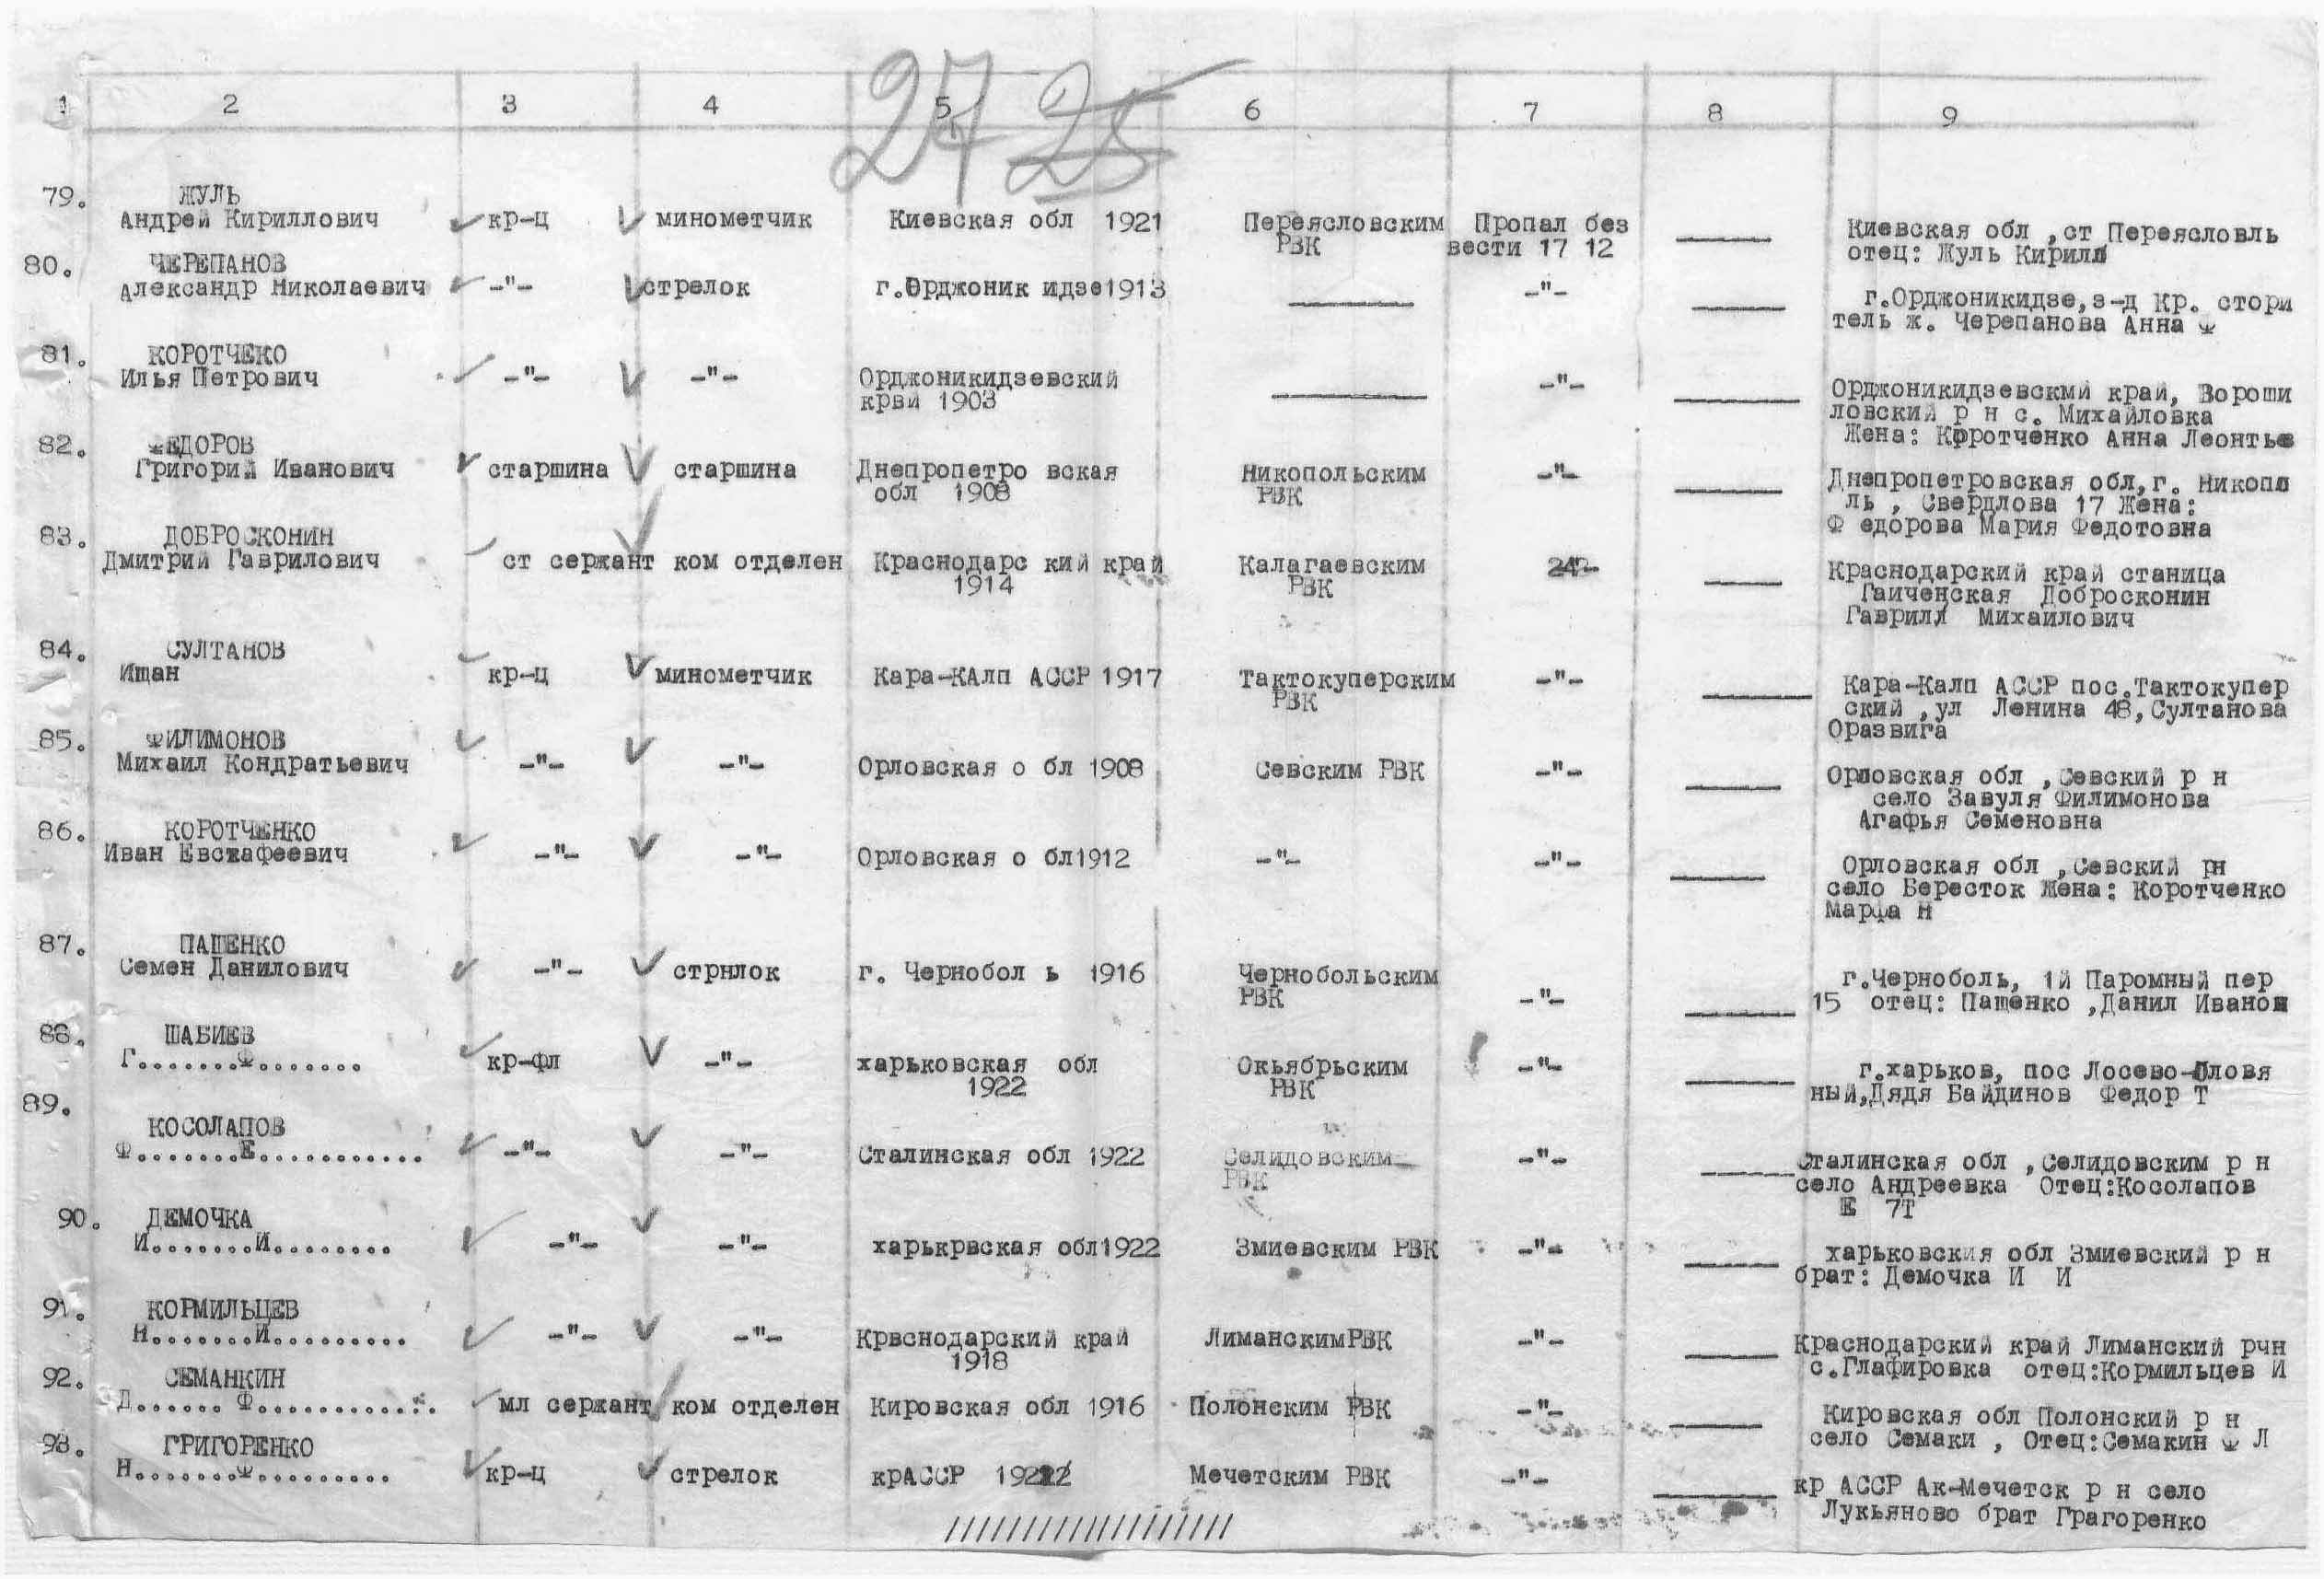 27 25
1 2 3 4 5 6 7 8 9
79. ЖУЛЬ
Андрей Кириллович кр-ц минометчик Киевская обл 1921 Переясловским Пропал без Киевская обл ,ст Переясловль
РВК вести 17 12 отец: Жуль Кирилл
80. ЧЕРЕПАНОВ
Александр Николаевич -"- стрелок г.Орджоник идзе1913 -"- г.Орджоникидзе,з-д Кр. стори
тель ж. Черепанова Анна Ф
81. КОРОТЧЕКО
Илья Петрович -"- -"- Орджоникидзевский -"- Орджоникидзевскми край, Вороши
крви 1903 ловский р н с. Михайловка
Жена: Коротченко Анна Леонтье
82. ФЕДОРОВ
Григорий Иванович старшина старшина Днепропетро вская Никопольским -"- Днепропетровская обл,г. Никопо
обл 1908 РВК ль , Свердлова 17 Жена:
Ф едорова Мария Федотовна
83. ДОБРОСКОНИН
Дмитрий Гаврилович ст сержант ком отделен Краснодарс кий край Калагаевским Краснодарский край станица
1914 РВК Гаиченская Добросконин
Гаврилл Михайлович
84. СУЛТАНОВ
Ищан кр-ц минометчик Кара-КАлп АССР 1917 Тактокуперским -"- Кара-Калп АССР пос.Тактокупер
РВК ский ,ул Ленина 48,Султанова
Оразвига
85. ФИЛИМОНОВ
Михаил Кондратьевич -"- -"- Орловская о бл 1908 Севским РВК -"- Орловская обл ,Севский р н
село Завуля Филимонова
Агафья Семеновна
86. КОРОТЧЕНКО
Иван Евстафеевич -"- -"- Орловская о бл1912 -"- -"- Орловская обл ,Севский рн
село Бересток Жена: Коротченко
Марфа Н
87. ПАЩЕНКО
Семен Данилович -"- стрнлок г. Чернобол ь 1916 Чернобольским г.Черноболь, 1й Паромный пер
РВК -"- 15 отец: Пащенко ,Данил Иванов
88. ШАБИЕВ
Г.......Ф....... кр-фл -"- харьковская обл Окьябрьским -"- г.харьков, пос Лосево-Пловя
1922 РВК ный,Дядя Байдинов Федор Т
89.
КОСОЛАПОВ
Ф.......Е........... -"- -"- Сталинская обл 1922 Селидовским -"- Сталинская обл ,Селидовским р н
РВК село Андреевка Отец:Косолапов
Е 7Т
90. ДЕМОЧКА
И.......И........ -"- -"- харькрвская обл1922 Змиевским РВК -"- харьковския обл Змиевский р н
брат: Демочка И И
91. КОРМИЛЬЦЕВ
Н.......И......... -"- -"- Крвснодарский край ЛиманскимРВК -"- Краснодарский край Лиманский рчн
1918 с.Глафировка отец:Кормильцев И
92. СЕМАНКИН
Д...... Ф............ мл сержант ком отделен Кировская обл 1916 Полонским РВК -"- Кировская обл Полонский р н
село Семаки , Отец:Семакин Ф Л
93. ГРИГОРЕНКО
Н.......Ф......... кр-ц стрелок крАССР 1922 Мечетским РВК -"- кр АССР Ак-Мечетск р н село
Лукьяново брат Грагоренко
///////////////////